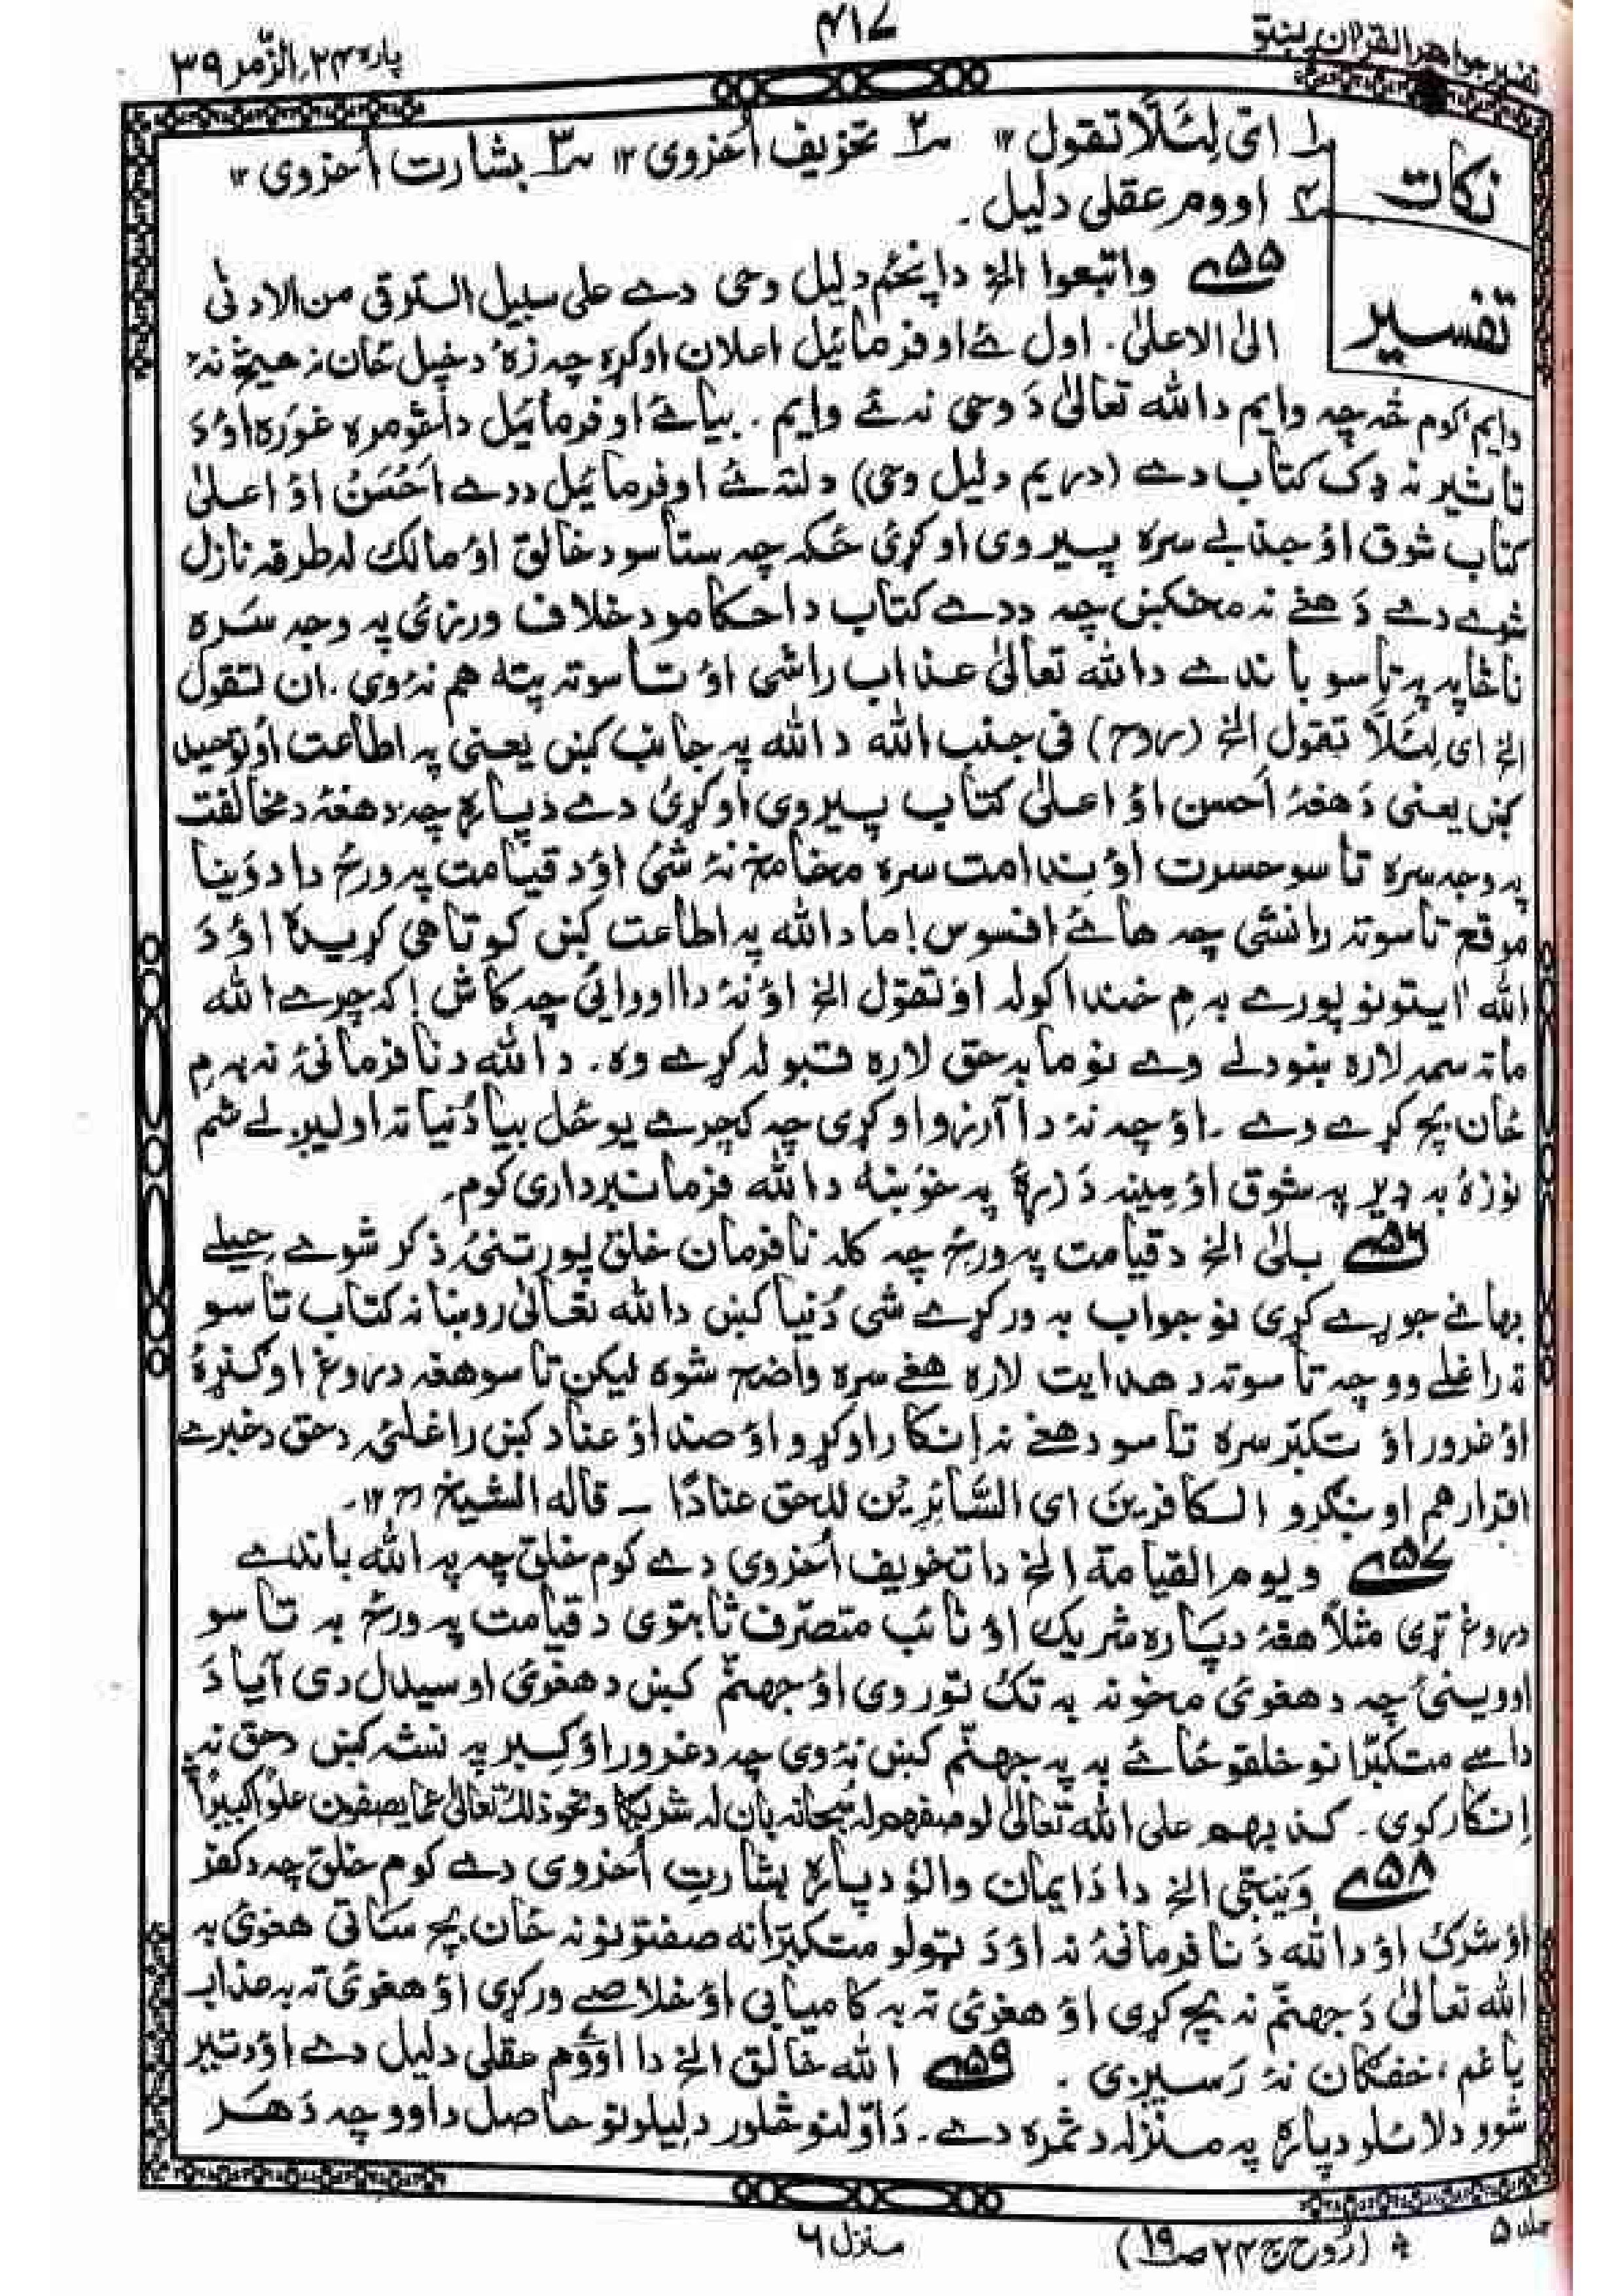 تفسیر جواهر القرآن پښتو
۴۱۷
پاره ۲۴، الزّمر ۳۹
نکات
۱ ای لِئَلَّا تقول ۱۲ ۲ تخویف اُخروی ۱۲ ۳ بشارت اُخروی ۱۲
۴ اووم عقلی دلیل.
تفسیر
۵۵ واتبعوا الخ دا پنځم دلیل وحی دے علی سبیل الترقی من الادنیٰ
الی الاعلیٰ. اول ئے اوفرمائیل اعلان اوکړه چه زهٔ دخپل ځان نه هیڅ نهٔ
وایم کوم څه چه وایم دالله تعالیٰ دَ وحی نه ئے وایم. بیا ئے اوفرمائیل دا څومره غوره اوٗ دَ
تاثیر نه ډک کتاب دے (دریم دلیل وحی) دلته ئے اوفرمائیل ددے اَحْسَنُ اوٗ اعلیٰ
کتاب شوق اوٗ جذبے سره پیروی اوکړئ ځکه چه ستاسو د خالق اوٗ مالک له طرفه نازل
شوے دے دَ هغے نه مخکښ چه ددے کتاب د احکامو د خلاف ورزئ په وجه سَره
ناڅاپه په تاسو باندے دالله تعالیٰ عذاب راشی اوٗ تاسوته پته هم نهٔ وی. ان تقول
الخ ای لِئَلَّا تقول الخ (روح) فی جنب الله دالله په جانب کښ یعنی په اطاعت اوٗ توحید
کښ یعنی دَ هغهٔ اَحسن اوٗ اعلیٰ کتاب پیروی اوکړئ دے دپاره چه دهغهٔ د مخالفت
په وجه سره تاسو حسرت اوٗ ندامت سره مخامخ نهٔ شئ اوٗ د قیامت په ورځ دا دوینا
موقع تاسوته رانشی چه هائے افسوس! ما دالله په اطاعت کښ کوتاهی کړیده اوٗ دَ
الله ایتونو پورے به مِ خندا کوله اوٗ تقول الخ اوٗ نهٔ دا اووائی چه کاش! که چرے الله
ماته سمه لاره ښودلے وے نو ما به حق لاره قبوله کړے وه. دالله د نافرمانئ نه به مِ
ځان بچ کړے وے. اوٗ چه نهٔ دا آرزو اوکړی چه که چرے یو ځل بیا دُنیا ته اولیږلے شم
نو زهٔ به ډیر په شوق اوٗ مینه دَ زړهٔ په خوښه دالله فرمانبرداری کوم.
۵۶ بلیٰ الخ د قیامت په ورځ چه کله نافرمان خلق پورتنئ ذکر شوے حیلے
بهانے جوړے کړی نو جواب به ورکړے شی دُنیا کښ دالله تعالیٰ روښانه کتاب تاسو
ته راغلے وو چه تاسوته د هدایت لاره هغے سره واضح شوه لیکن تاسو هغه دروغ اوګنړهٔ
اوٗ غرور اوٗ تکبّر سره تاسو دهغے نه اِنکار اوکړو اوٗ ضد اوٗ عناد کښ راغلئ دحق دخبرے
اقرار هم اونکړو الکافرین ای السَّاتِرِیْنَ للحق عنادًا ـ قاله الشیخ ؒ ۱۲.
۵۷ ویوم القیامة الخ دا تخویف اُخروی دے کوم خلق چه په الله باندے
دروغ تړی مثلاً هغهٔ دپاره شریک اوٗ نائب متصرّف ثابتوی د قیامت په ورځ به تاسو
اووینئ چه دهغوئ مخونه به تک تور وی اوٗ جهنّم کښ دهغوئ اوسیدل دی آیا دَ
داسے متکبّرانو خلقو ځائے به په جهنّم کښ نهٔ وی چه دغرور اوٗ کِبر په نشه کښ دحق نه
اِنکار کوی. کذبهم علی الله تعالیٰ لوصفهم له سبحانه بان له شریکا ونحو ذلك تعالیٰ عما یصفون علوًا کبیرًا
۵۸ وَیُنَجِّی الخ دا دَ ایمان والوٗ دپاره بشارتِ اُخروی دے کوم خلق چه دکفر
اوٗ شرک اوٗ دالله دَ نافرمانئ نه اوٗ دَ ټولو متکبّرانه صفتونو نه ځان بچ ساتی هغوئ به
الله تعالیٰ دَ جهنّم نه بچ کړی اوٗ هغوئ ته به کامیابی اوٗ خلاصے ورکړی اوٗ هغوئ ته به عذاب
یا غم، خفګان نهٔ رَسیږی. ۵۹ الله خالق الخ دا اووم عقلی دلیل دے اوٗ د تیر
شوو دلائلو دپاره په منزله د ثمره دے. دَ اوّلنو څلور دلیلونو حاصل دا وو چه دَ هَر
جلد ۵
(رُوح ج ۲۴ ص ۱۹)
منزل ۶